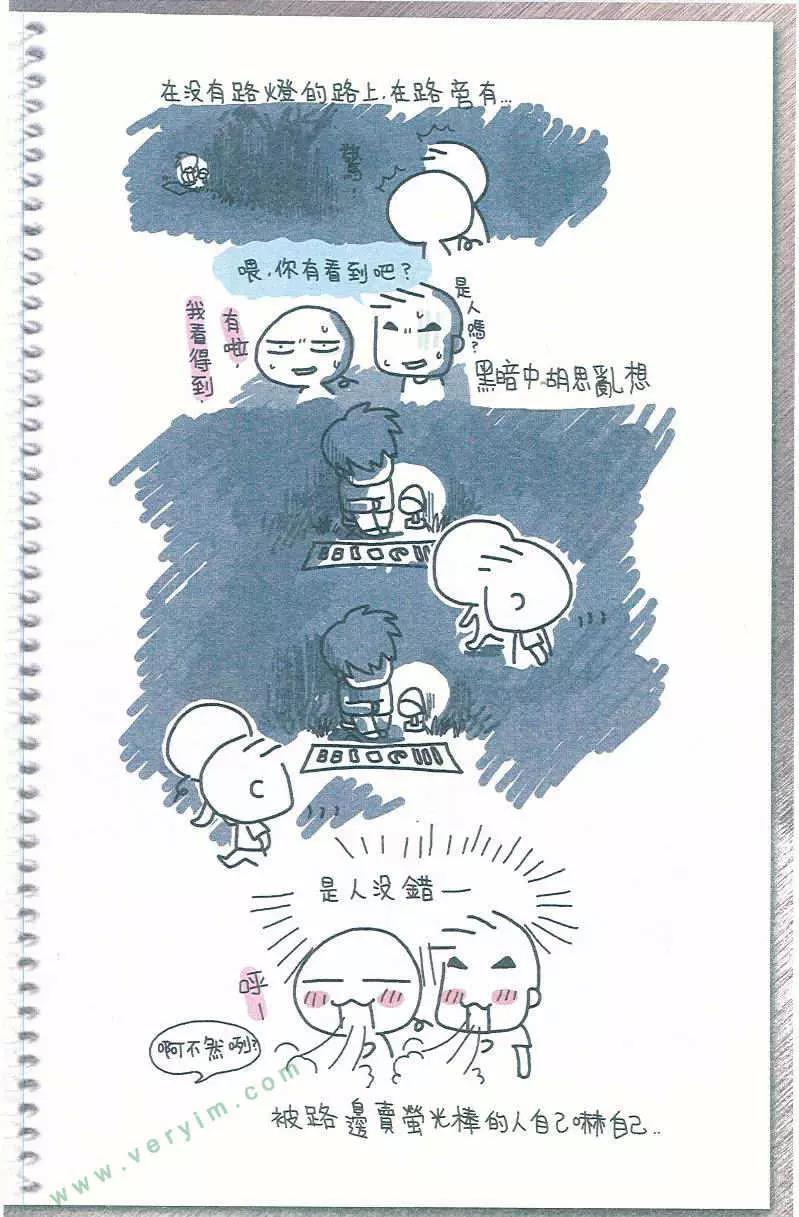 在没有路燈的路上.在路旁有...
驚.
喂.你有看到吧?
是人嗎?
有啦.
我看得到.
黑暗中胡思亂想
是人没錯一
呼一
啊不然咧?
被路邊賣螢光棒的人自己嚇自己..
www.veryim.com